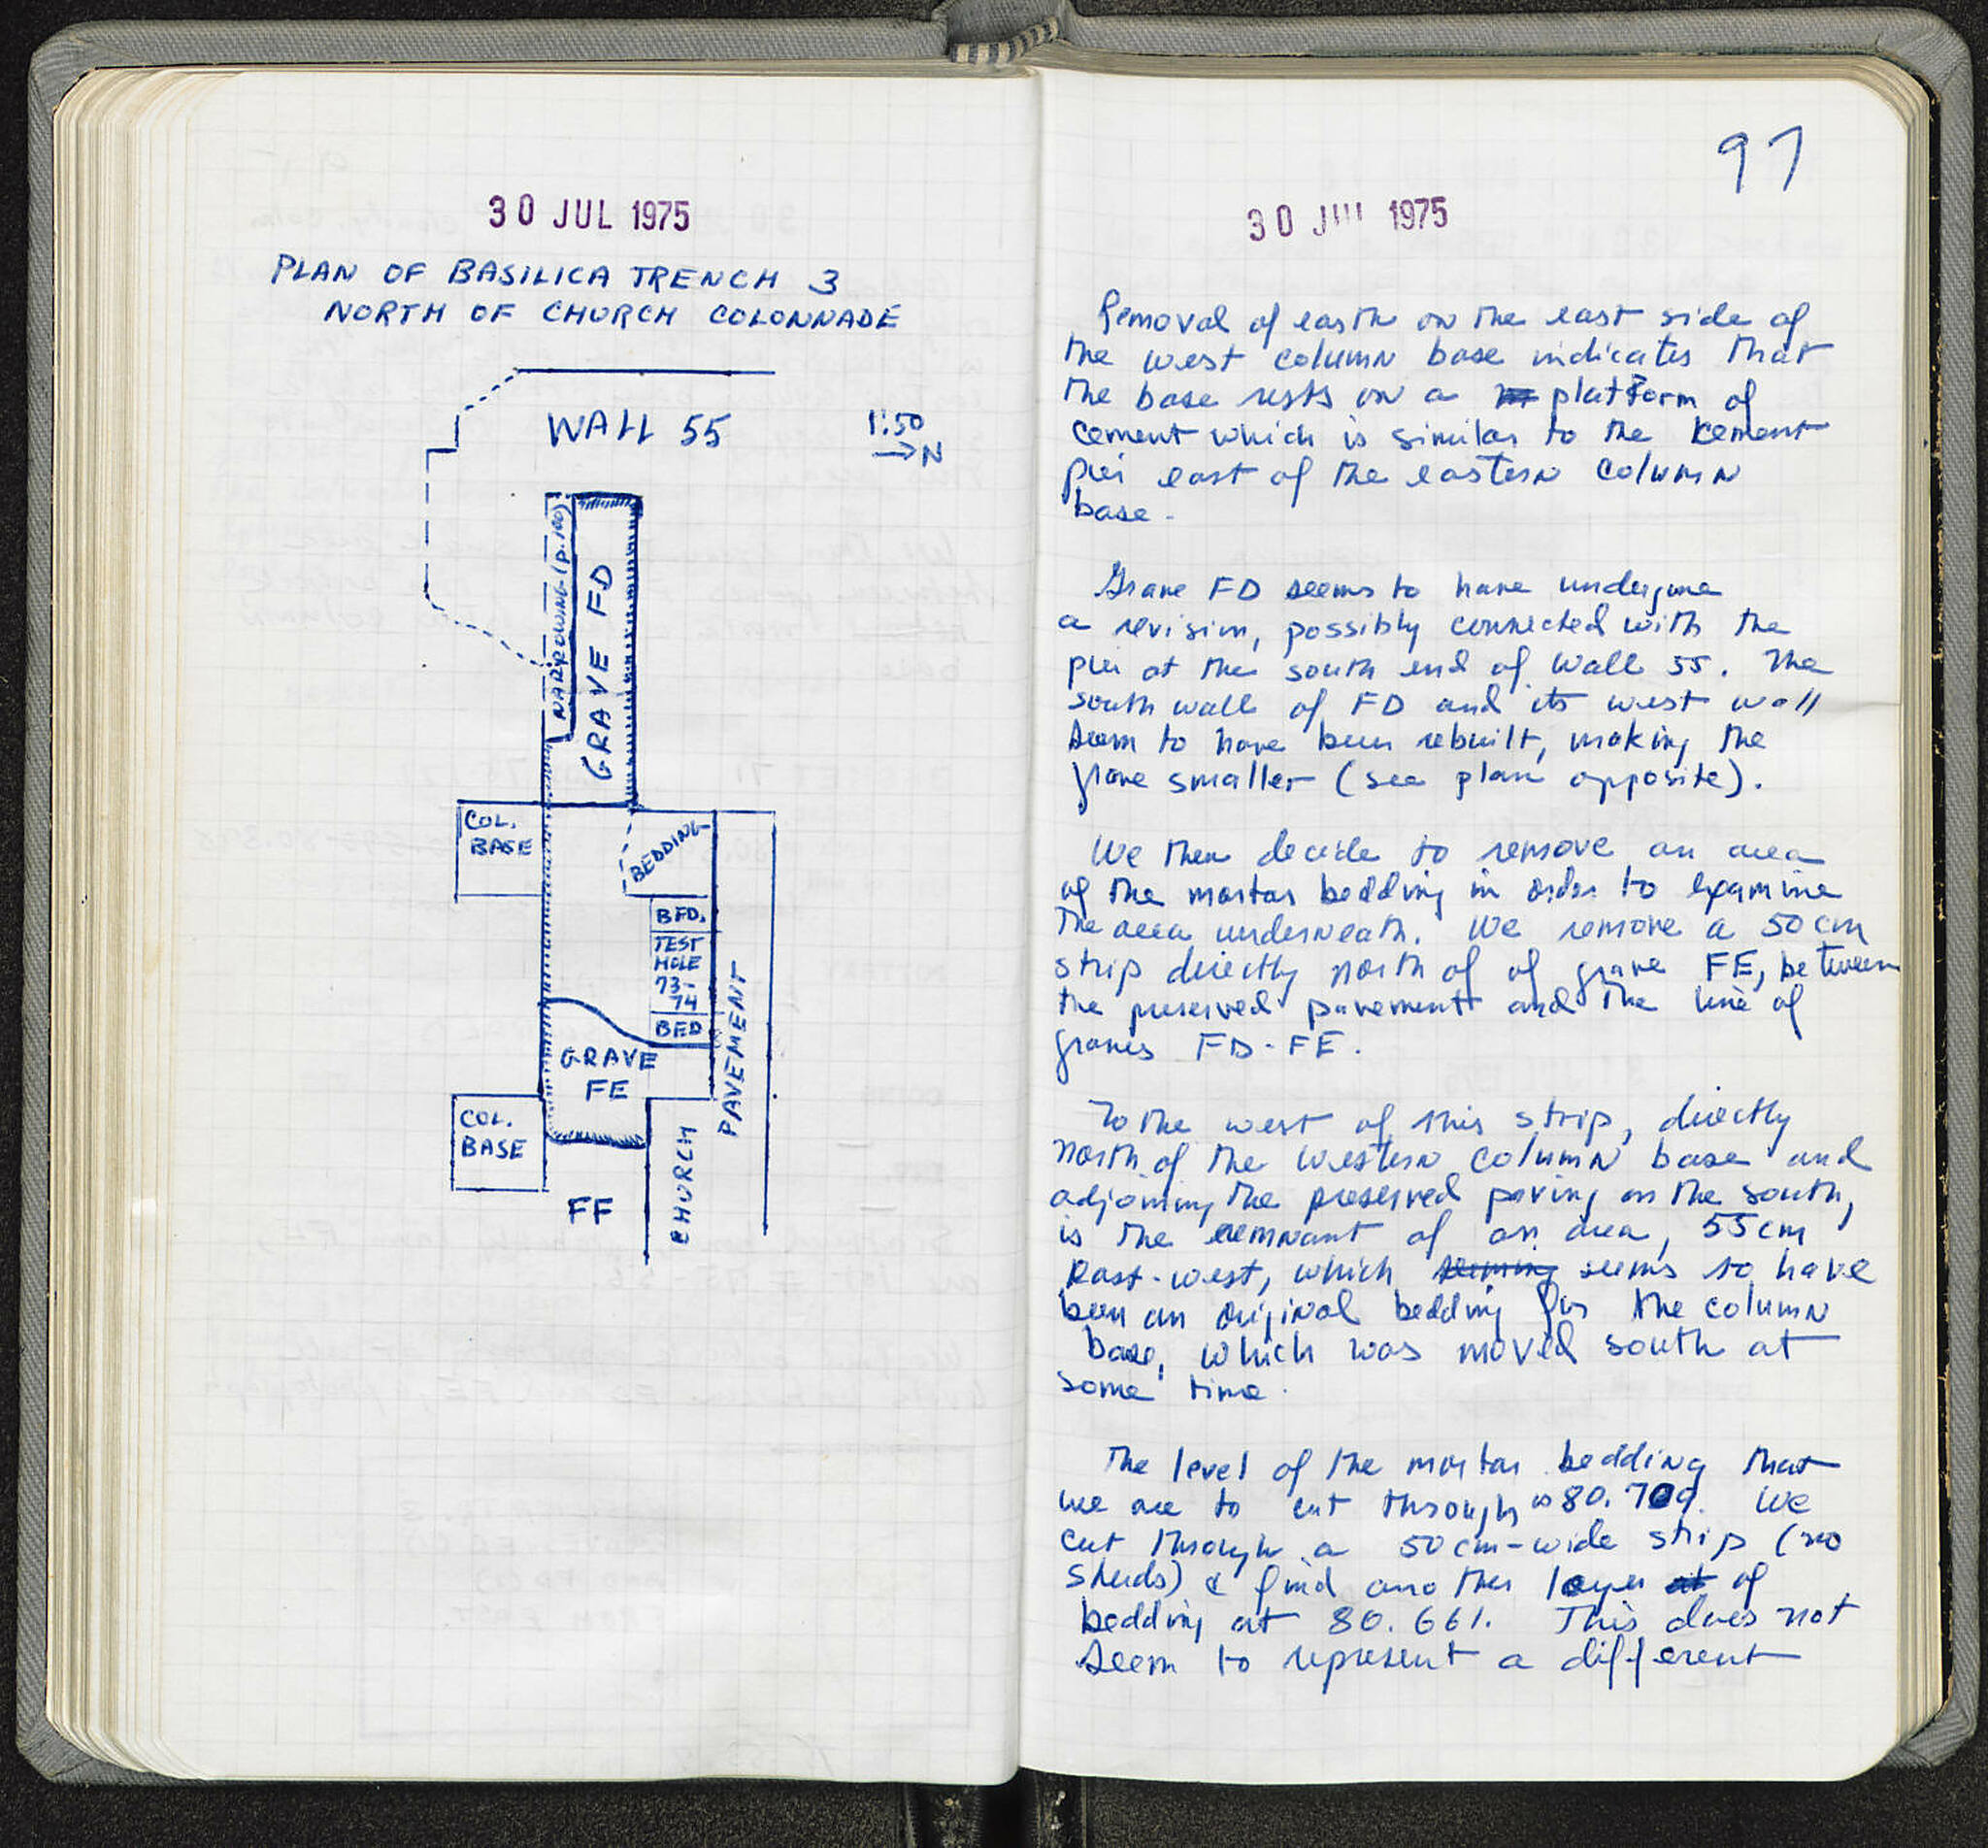 30 JUL 1975
PLAN OF BASILICA TRENCH 3
NORTH OF CHURCH COLONNADE
WALL 55
1:50
→N
NARROWING (p.100)
GRAVE FD
COL.
BASE
BEDDING
BED.
TEST
HOLE
73-
74
BED
PAVEMENT
GRAVE
FE
COL.
BASE
CHURCH
FF
97
30 JUL 1975
Removal of earth on the east side of
the west column base indicates that
the base rests on a platform of
cement which is similar to the cement
pier east of the eastern column
base.
Grave FD seems to have undergone
a revision, possibly connected with the
pier at the south end of Wall 55. The
south wall of FD and its west wall
seem to have been rebuilt, making the
grave smaller (see plan opposite).
We then decide to remove an area
of the mortar bedding in order to examine
the area underneath. We remove a 50 cm
strip directly north of of grave FE, between
the preserved pavement and the line of
graves FD-FE.
To the west of this strip, directly
north of the western column base and
adjoining the preserved paving on the south,
is the remnant of an area, 55 cm
East-west, which seeming seems to have
been an original bedding for the column
base, which was moved south at
some time.
The level of the mortar bedding that
we are to cut through is 80.709. We
cut through a 50 cm-wide strip (no
sherds) & find another layer at of
bedding at 80.661. This does not
seem to represent a different